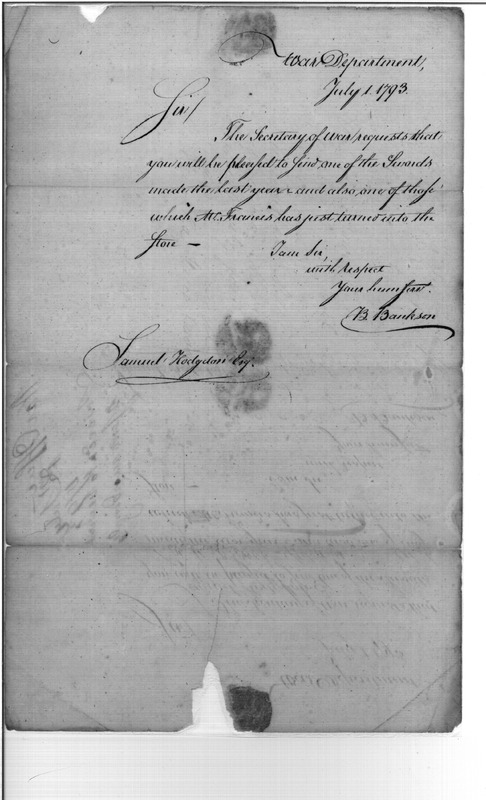 War Department,
July 1. 1793.
Sir/
The Secretary of War requests that
you will be pleased to send one of the Swords
made the last year & and also, one of those
which Mr. Francis has just turned into the
Store —
I am Sir,
with respect
Your hum servt.
B. Bankson
Samuel Hodgdon Esq.